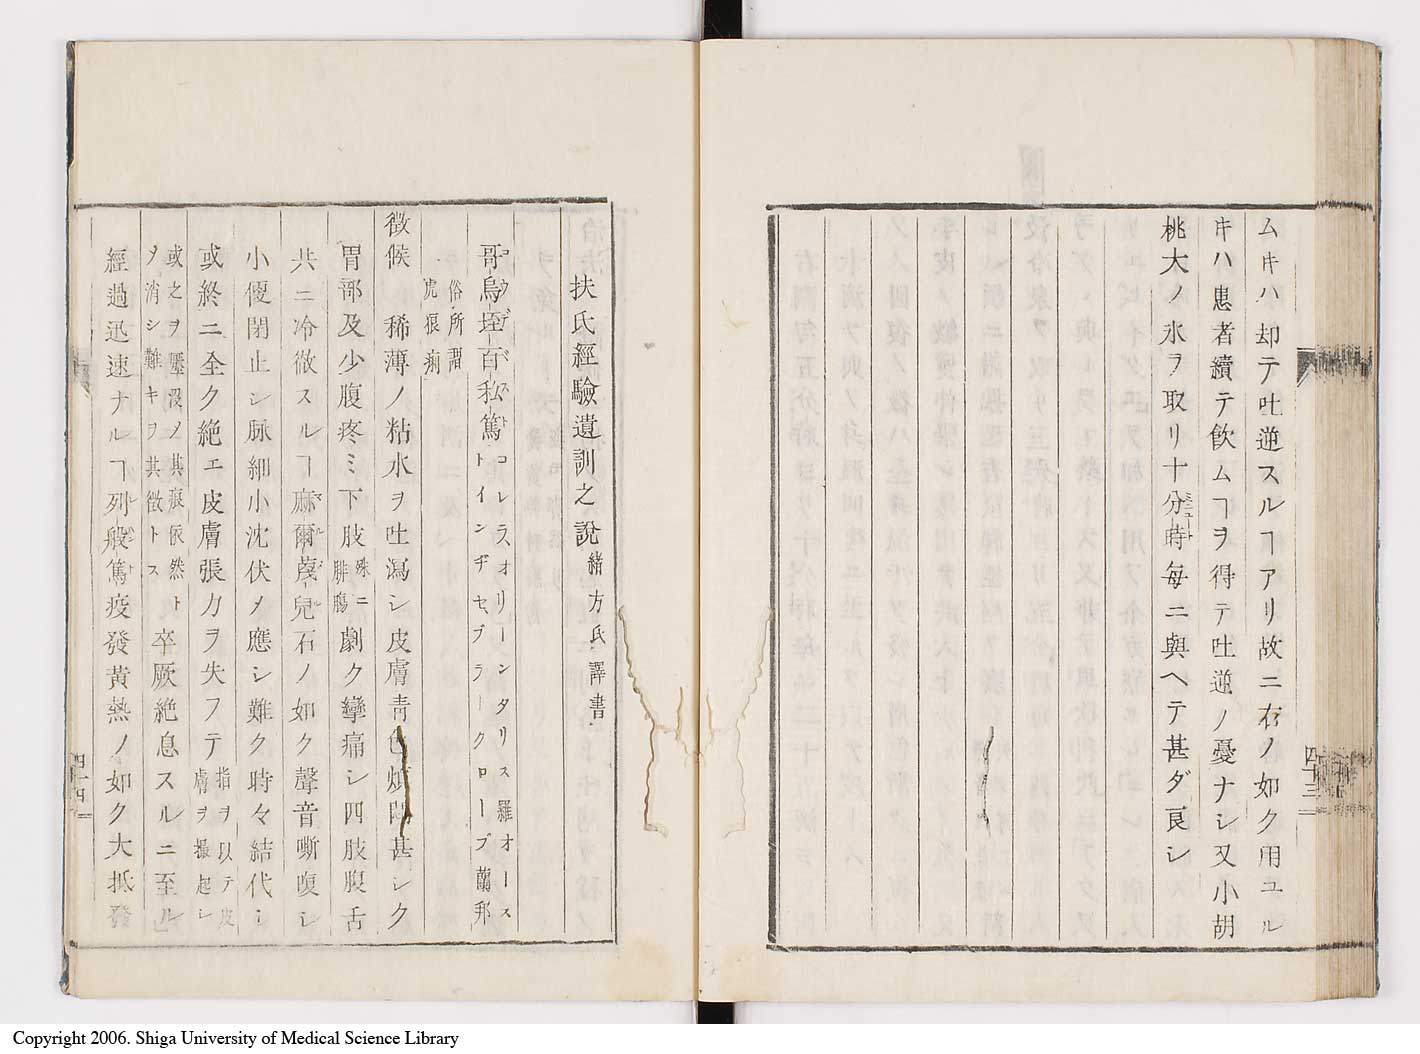 ムキハ却テ吐逆スルヿアリ故ニ右ノ如ク用ユル
キハ患者續テ飲ムヿヲ得テ吐逆ノ憂ナシ又小胡
桃大ノ氷ヲ取リ十分時毎ニ與ヘテ甚ダ良シ
四十三
扶氏經驗遺訓之說 緒方氏譯書
哥烏垤百私篤 トコレラスオリーンタリス 羅 オース
トインヂセブラークロープ 蘭 邦
俗所謂
虎狼痢
徵候 稀薄ノ粘水ヲ吐瀉シ皮膚靑色煩悶甚シク
胃部及少腹疼ミ下肢 殊ニ腓腸 劇ク攣痛シ四肢腹舌
共ニ冷徹スルヿ麻爾謨兒石ノ如ク聲音嘶嗄シ
小便閉止シ脉細小沈伏〆應シ難ク時々結代シ
或終ニ全ク絶エ皮膚張力ヲ失フテ 指ヲ以テ皮膚ヲ撮起シ
或之ヲ壓沒〆其痕依然トヲ消シ難キヲ其徵トス 卒厥絶息スルニ至ル
經過迅速ナルヿ列般篤疫發黃熱ノ如ク大抵發
四十四
Copyright 2006. Shiga University of Medical Science Library